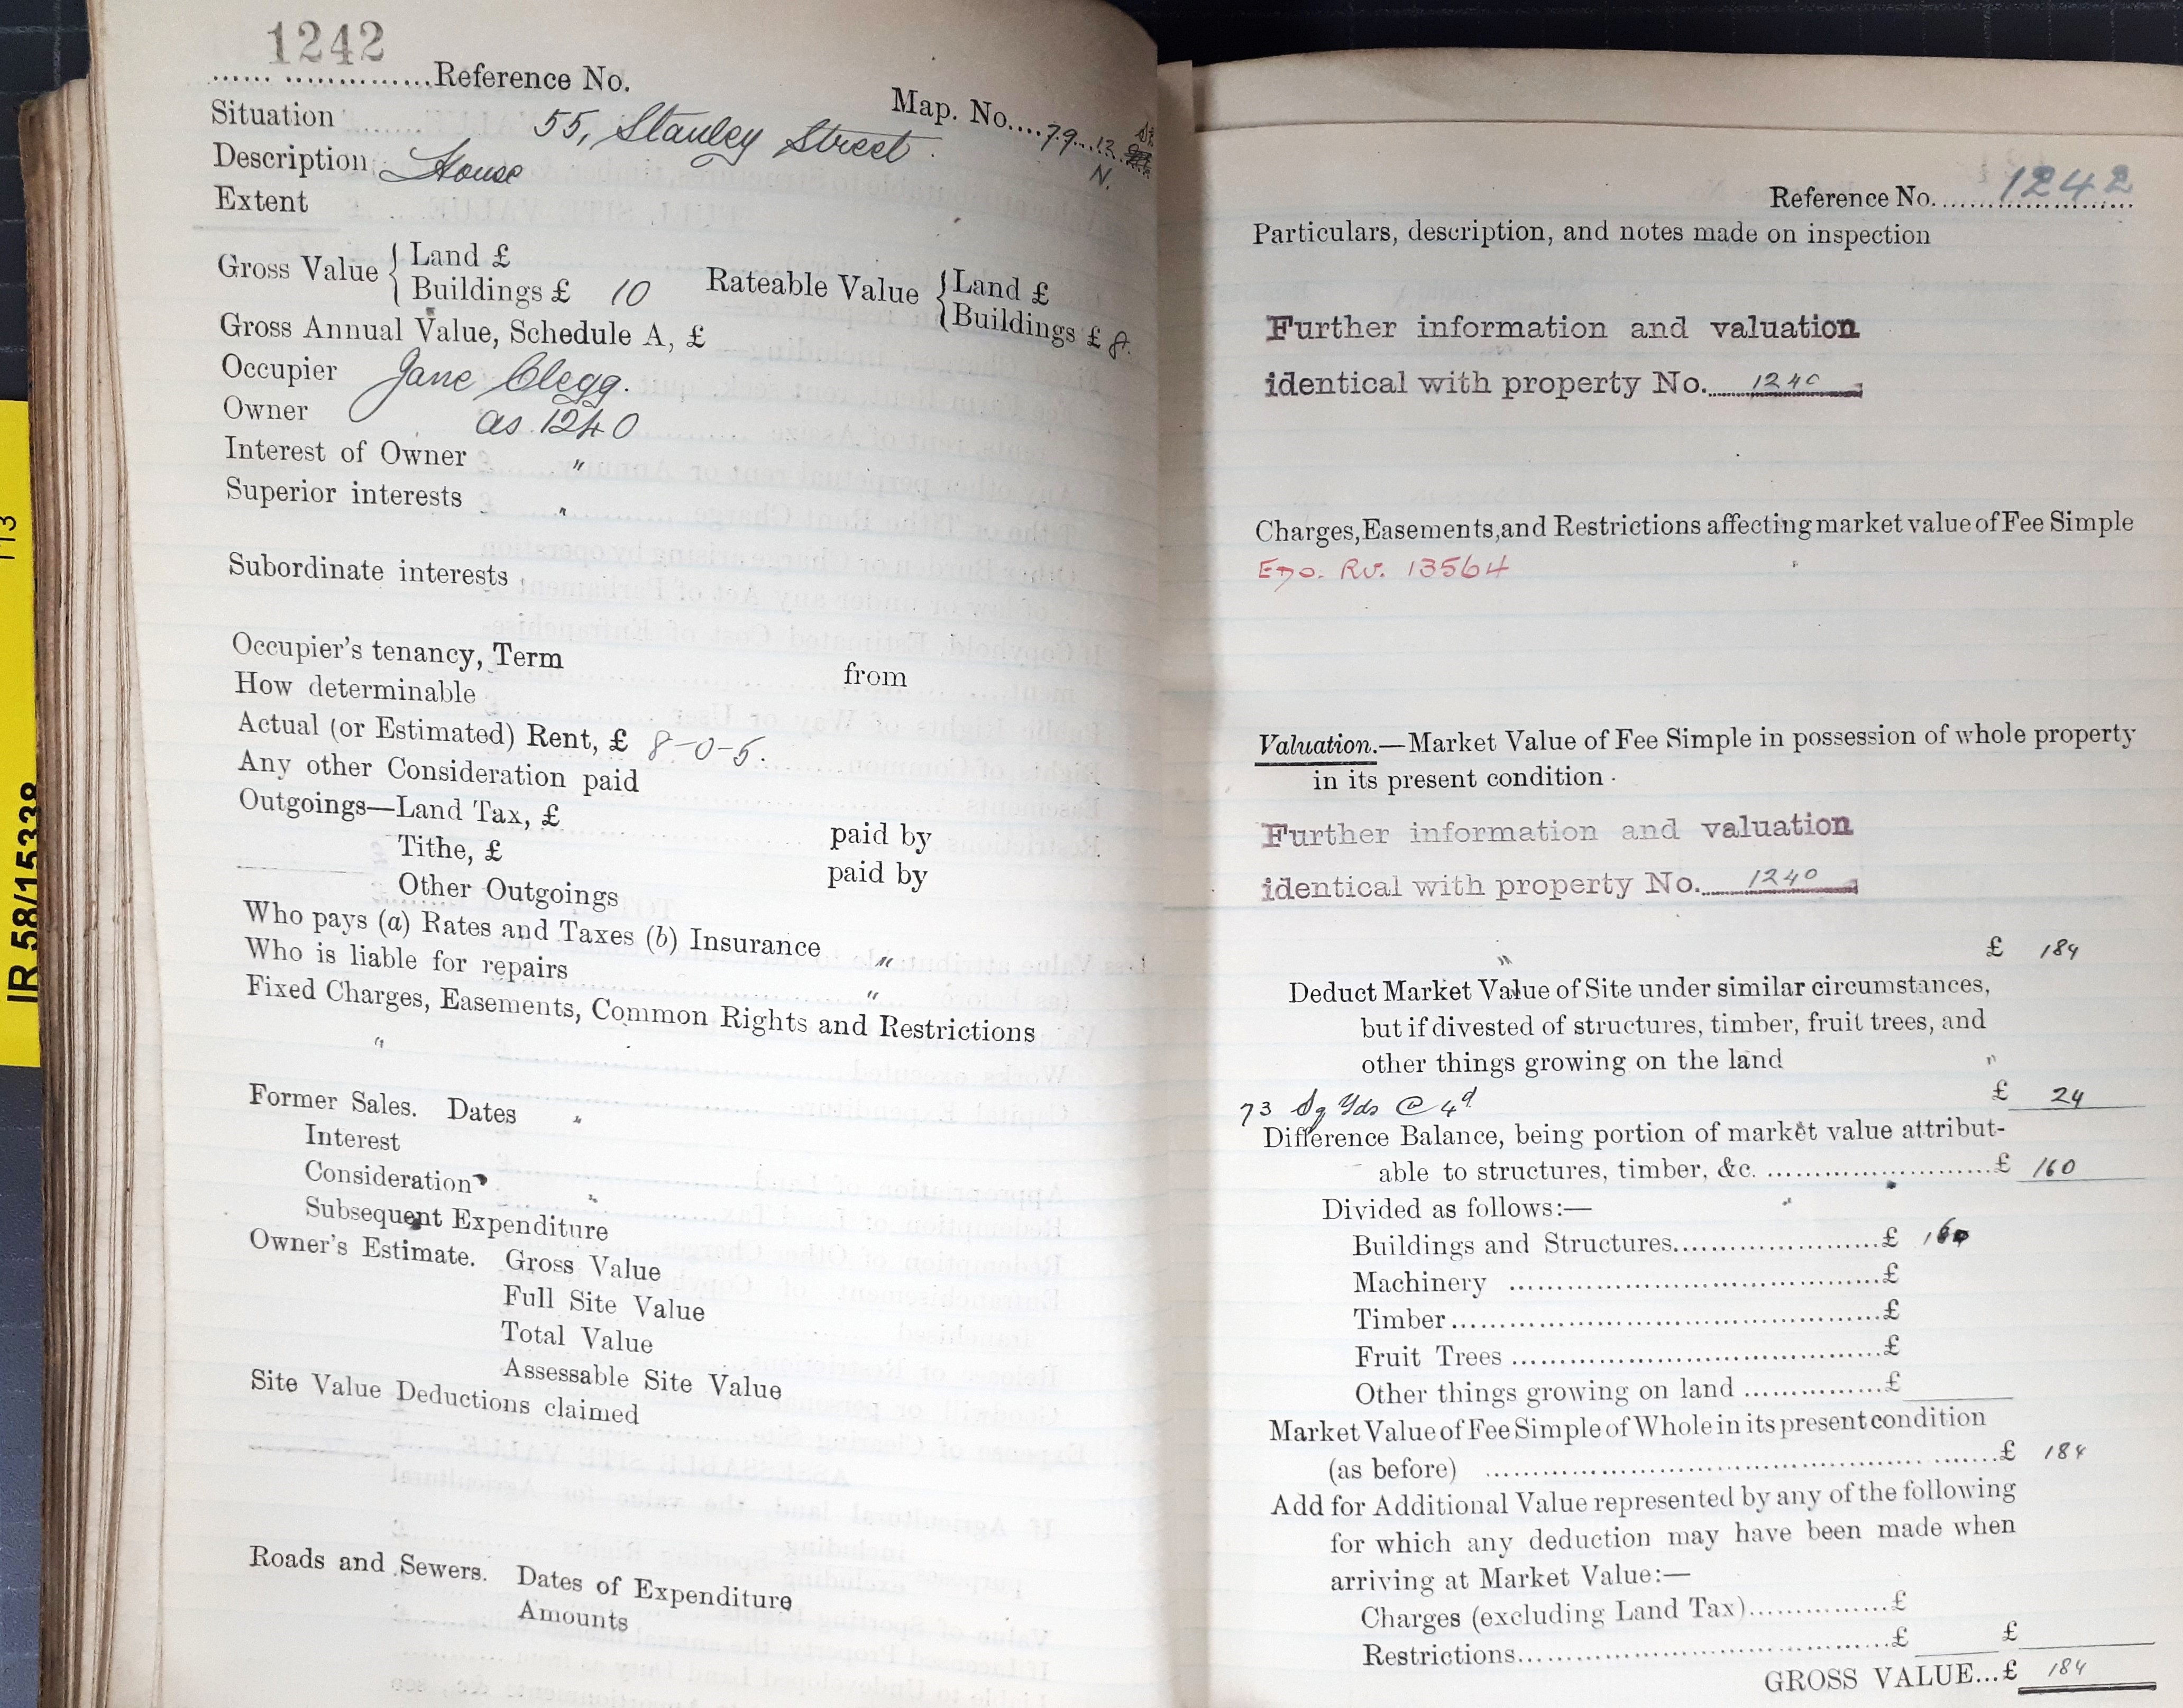 1242
...... ..............Reference No.
Map. No....79..13.
N.
Situation 55, Stanley Street.
Description House
Extent
Gross Value { Land £
Buildings £ 10
Rateable Value { Land £
Buildings £ 8.
Gross Annual Value, Schedule A, £
Occupier Jane Clegg.
Owner as 1240
Interest of Owner "
Superior interests "
Subordinate interests
Occupier's tenancy, Term from
How determinable
Actual (or Estimated) Rent, £ 8-0-5.
Any other Consideration paid
Outgoings—Land Tax, £ paid by
Tithe, £ paid by
Other Outgoings
Who pays (a) Rates and Taxes (b) Insurance "
Who is liable for repairs "
Fixed Charges, Easements, Common Rights and Restrictions
"
Former Sales. Dates "
Interest
Consideration "
Subsequent Expenditure
Owner's Estimate. Gross Value
Full Site Value
Total Value
Assessable Site Value
Site Value Deductions claimed
Roads and Sewers. Dates of Expenditure
Amounts
113
IR 58/15338
Reference No. 1242
Particulars, description, and notes made on inspection
Further information and valuation
identical with property No. 1240
Charges, Easements, and Restrictions affecting market value of Fee Simple
Rv. 13564
Valuation.—Market Value of Fee Simple in possession of whole property
in its present condition
Further information and valuation
identical with property No. 1240
" £ 184
Deduct Market Value of Site under similar circumstances,
but if divested of structures, timber, fruit trees, and
other things growing on the land "
73 Sq Yds @ 4d £ 24
Difference Balance, being portion of market value attribut-
able to structures, timber, &c. ........................£ 160
Divided as follows:—
Buildings and Structures......................£ 160
Machinery ......................................£
Timber............................................£
Fruit Trees ......................................£
Other things growing on land ..............£
Market Value of Fee Simple of Whole in its present condition
(as before) ......................................................£ 184
Add for Additional Value represented by any of the following
for which any deduction may have been made when
arriving at Market Value:—
Charges (excluding Land Tax)...............£
Restrictions.......................................£ £
GROSS VALUE...£ 184